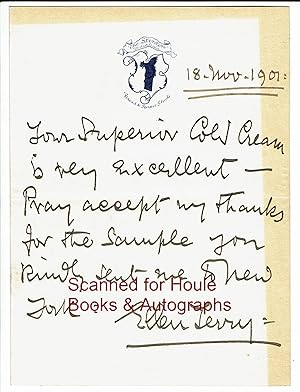 18-Nov-1901:
Your Superior Cold Cream
is very Excellent —
Pray accept my thanks
for the Sample you
kindly sent me to New
York —
Ellen Terry =
Scanned for Houle
Books & Autographs